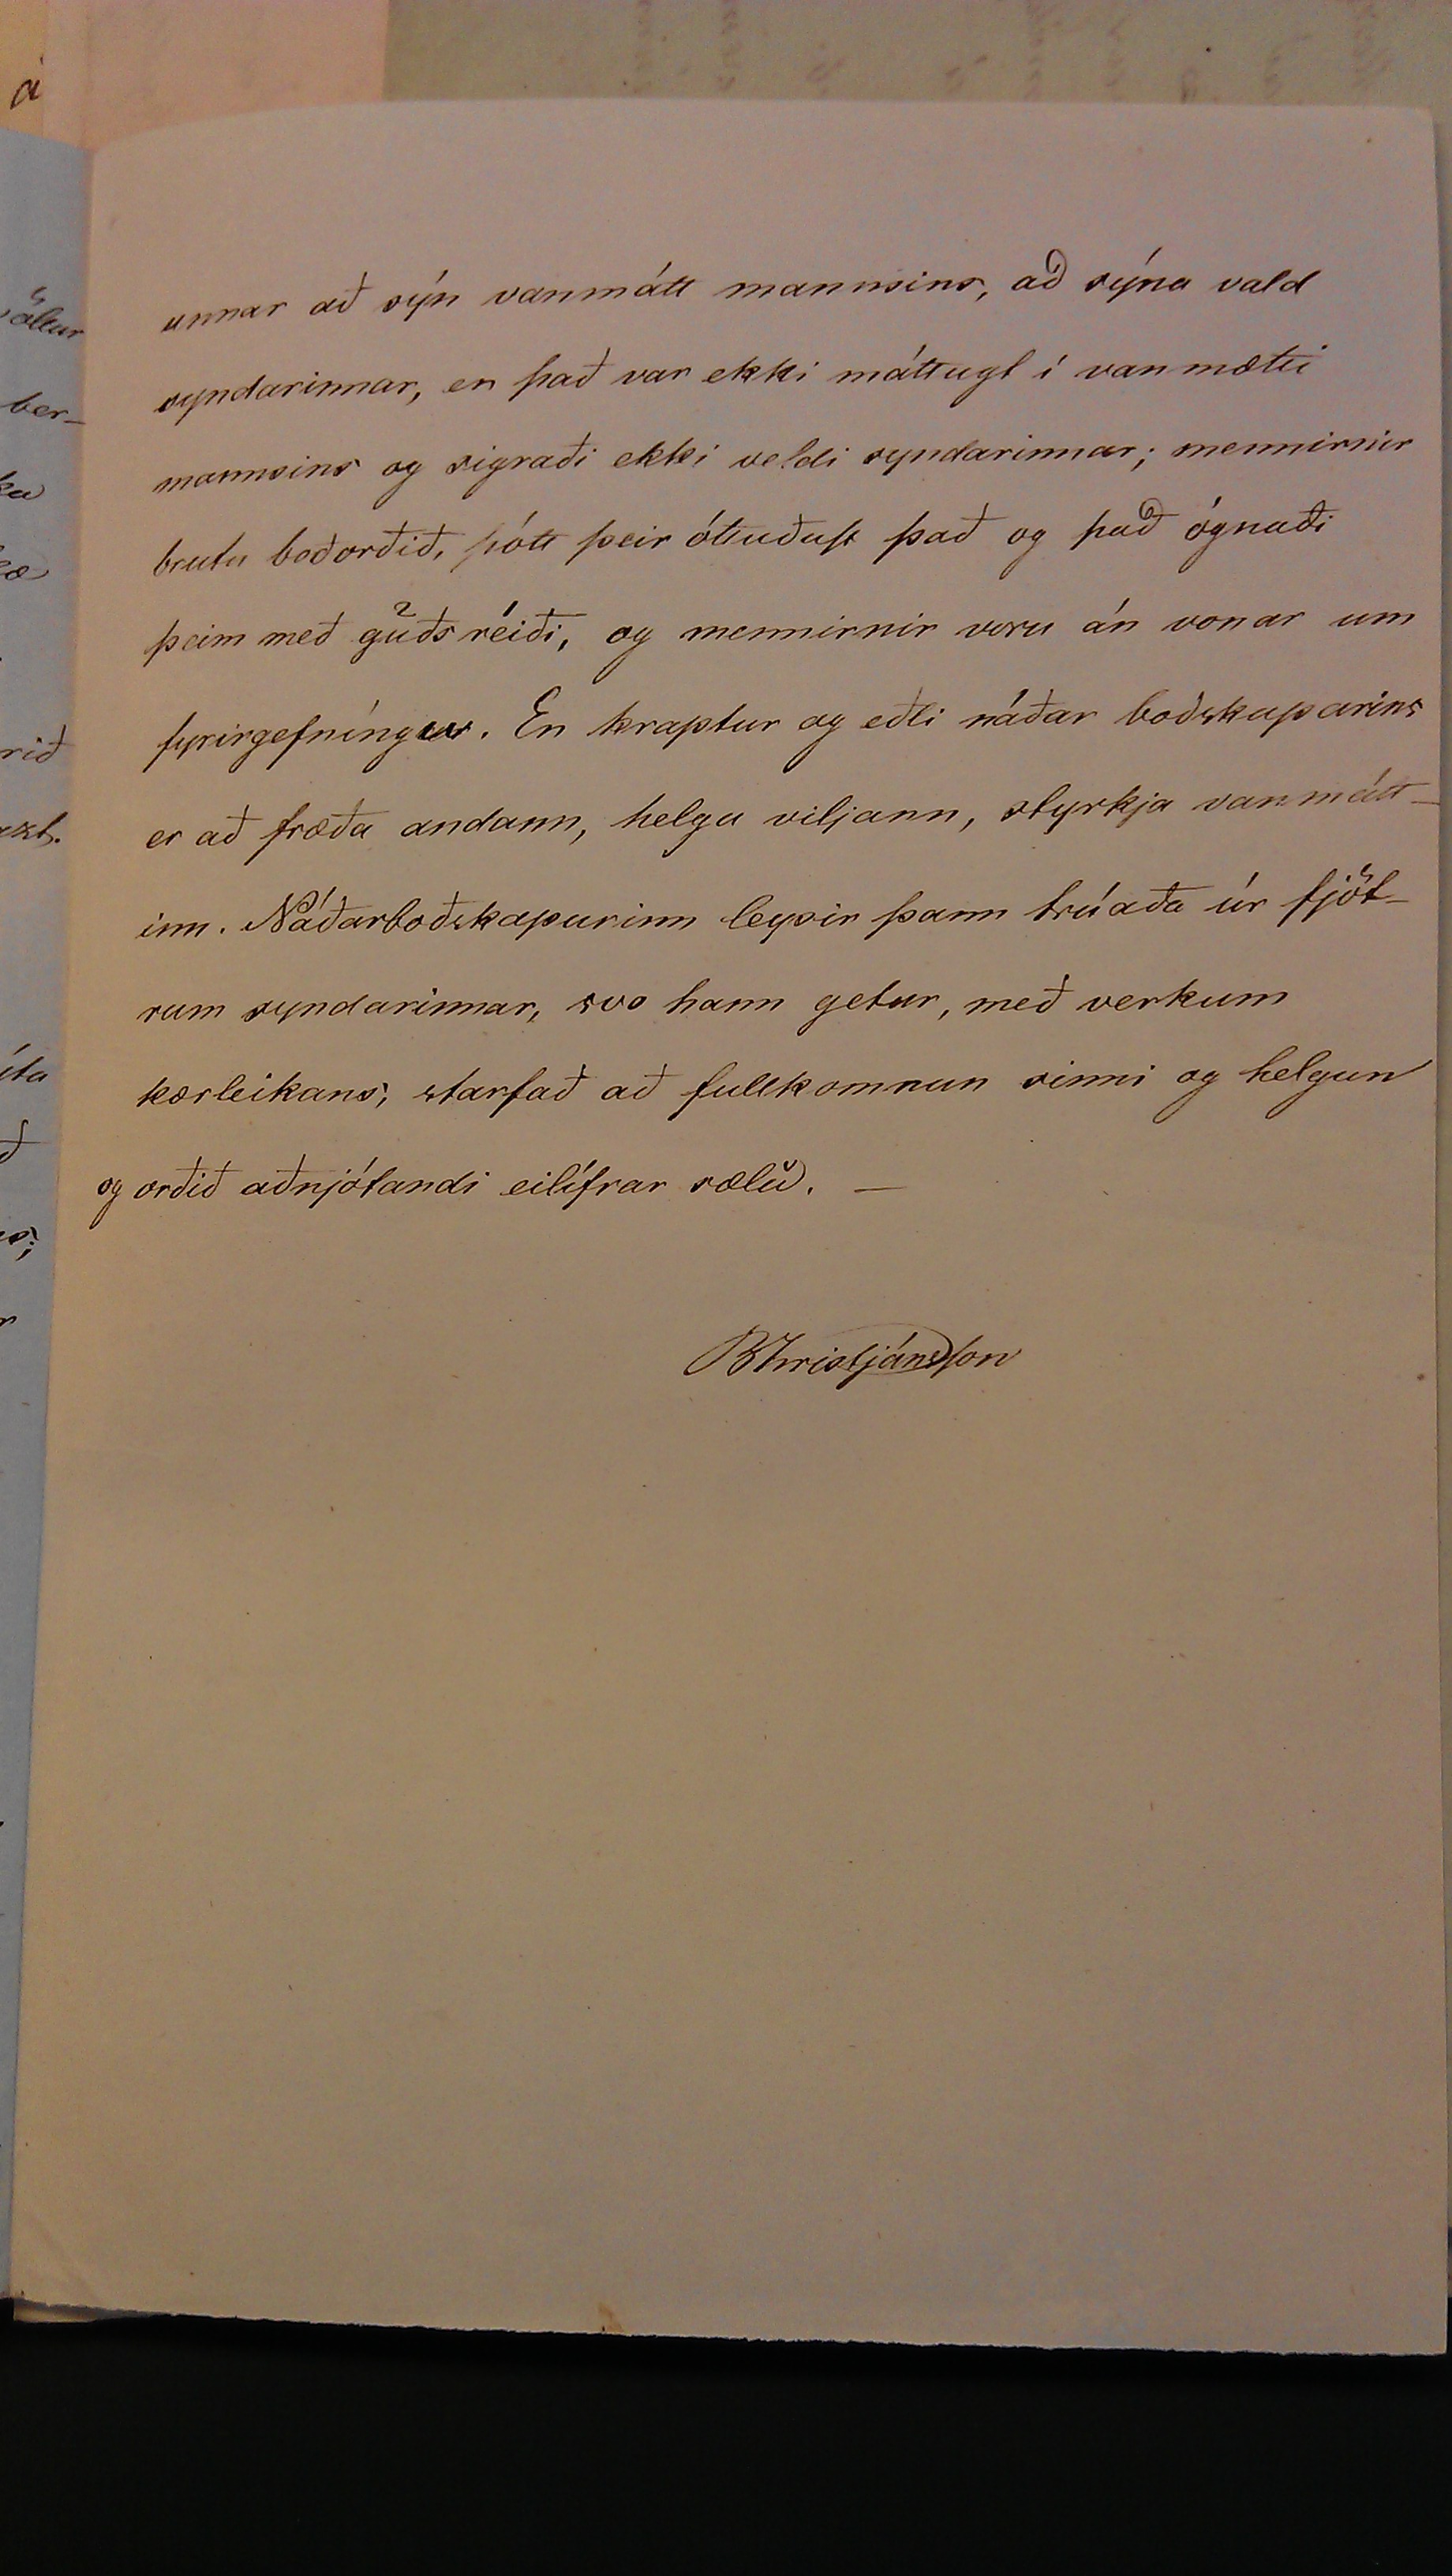 unnar að sýn vanmátt mannsins, að sýna vald
syndarinnar, en það var ekki máttugt í vanmætti
mannsins og sigraði ekki veldi syndarinnar; mennirnir
brutu boðorðið, þótt þeir óttuðust það og það ógnaði
þeim með guðs reiði, og mennirnir voru án vonar um
fyrirgefníngu. En kraptur og eðli náðar boðskaparins
er að fræða andann, helga viljann, styrkja vanmátt-
inn. Náðarboðskapurinn leysir þann trúaða úr fjöt-
rum syndarinnar, svo hann getur, með verkum
kærleikans, starfað að fullkomnun sinni og helgun
og orðið aðnjótandi eilífrar sælu. —
BKristjánsson
á
ber-
rið